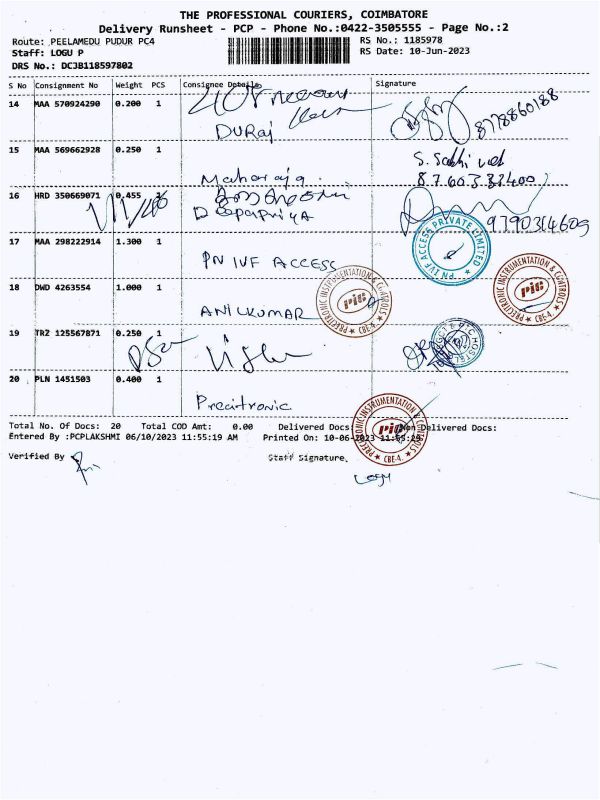 THE PROFESSIONAL COURIERS, COIMBATORE
Delivery Runsheet - PCP - Phone No.:0422-3505555 - Page No.:2
Route: PEELAMEDU PUDUR PC4 RS No.: 1185978
Staff: LOGU P RS Date: 10-Jun-2023
DRS No.: DCJB118597802
S No Consignment No Weight PCS Consignee Details Signature
14 MAA 570924290 0.200 1
DURaj 8778860188
15 MAA 569662928 0.250 1
Maharaja 8760332400
16 HRD 350669071 0.455
Deepapriya 9790314609
17 MAA 298222914 1.300 1
PN IVF ACCESS PN IVF ACCESS PRIVATE LIMITED
18 DWD 4263554 1.000 1
ANILKUMAR PRECITRONIC INSTRUMENTATION & CONTROLS PIC CBE-4. PRECITRONIC INSTRUMENTATION & CONTROLS PIC CBE-4.
19 TR2 125567871 0.250 1
20 PLN 1451503 0.400 1
Precitronic PRECITRONIC INSTRUMENTATION & CONTROLS PIC CBE-4.
Total No. Of Docs: 20 Total COD Amt: 0.00 Delivered Docs: Non Delivered Docs:
Entered By :PCPLAKSHMI 06/10/2023 11:55:19 AM Printed On: 10-06-2023 11:55:29
Verified By Staff Signature.
Logu